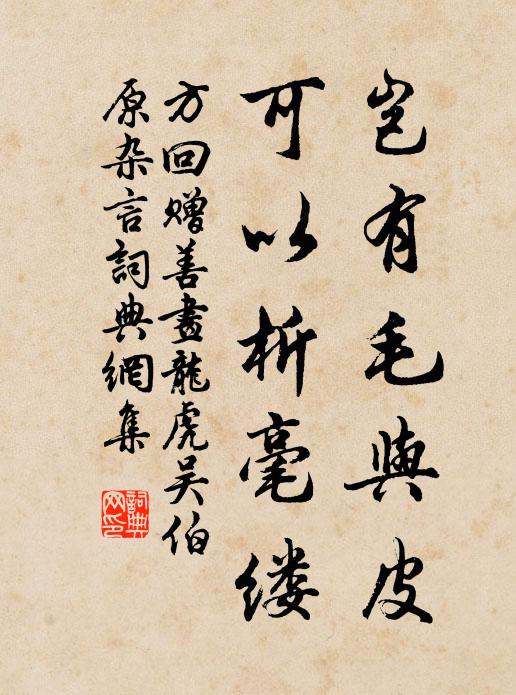 岂有毛與皮
可以析毫缕
方回赠善畫龍虎吴伯
原杂言詞典網集
詞典网印